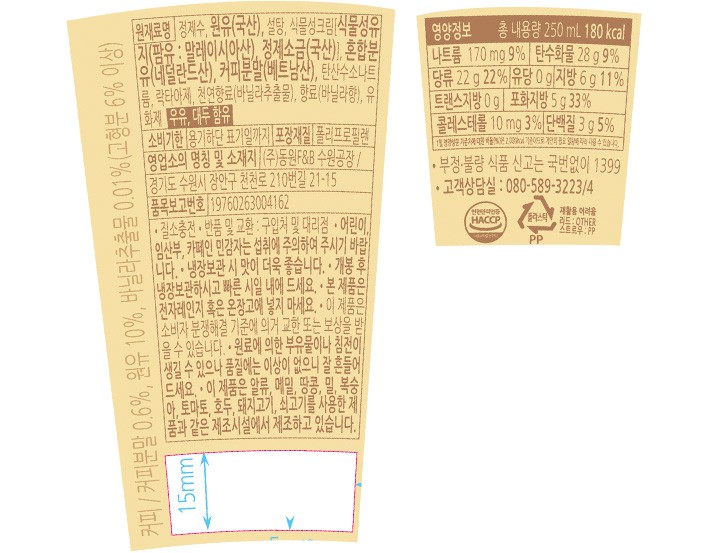 커피 / 커피분말 0.6%, 원유 10%, 바닐라추출물 0.01%(고형분 6% 이상)
원재료명 정제수, 원유(국산), 설탕, 식물성크림[식물성유
지(팜유 : 말레이시아산), 정제소금(국산)], 혼합분
유(네덜란드산), 커피분말(베트남산), 탄산수소나트
륨, 락타아제, 천연향료(바닐라추출물), 향료(바닐라향), 유
화제 우유, 대두 함유
소비기한 용기하단 표기일까지 포장재질 폴리프로필렌
영업소의 명칭 및 소재지 (주)동원F&B 수원공장 /
경기도 수원시 장안구 천천로 210번길 21-15
품목보고번호 19760263004162
• 질소충전 • 반품 및 교환 : 구입처 및 대리점 • 어린이,
임산부, 카페인 민감자는 섭취에 주의하여 주시기 바랍
니다. • 냉장보관 시 맛이 더욱 좋습니다. • 개봉 후
냉장보관하시고 빠른 시일 내에 드세요. • 본 제품은
전자레인지 혹은 온장고에 넣지 마세요. • 이 제품은
소비자 분쟁해결 기준에 의거 교환 또는 보상을 받
을 수 있습니다. • 원료에 의한 부유물이나 침전이
생길 수 있으나 품질에는 이상이 없으니 잘 흔들어
드세요. • 이 제품은 알류, 메밀, 땅콩, 밀, 복숭
아, 토마토, 호두, 돼지고기, 쇠고기를 사용한 제
품과 같은 제조시설에서 제조하고 있습니다.
15mm
영양정보 총 내용량 250 mL 180 kcal
나트륨 170 mg 9% 탄수화물 28 g 9%
당류 22 g 22% 유당 0 g 지방 6 g 11%
트랜스지방 0 g 포화지방 5 g 33%
콜레스테롤 10 mg 3% 단백질 3 g 5%
1일 영양성분 기준치에 대한 비율(%)은 2,000kcal 기준이므로 개인의 필요 열량에 따라 다를 수 있습니다.
• 부정·불량 식품 신고는 국번없이 1399
• 고객상담실 : 080-589-3223/4
안전관리인증
HACCP
플라스틱
PP
재활용 어려움
리드 : OTHER
스트로우 : PP